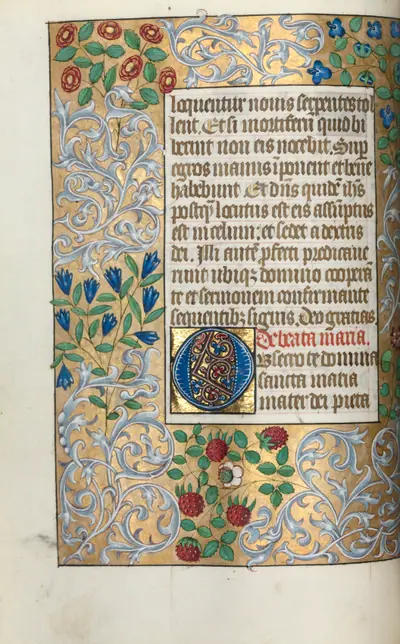 loquentur nouis serpentes tol
lent. Et si mortiferū quid bi
berint non eis nocebit. Sup
egros manus īponent et bene
habebunt. Et dn̄s quidē ihs̄
postq̄ locutus est eis assūptus
est in celum: et sedet a dextris
dei. Illi autē pfecti predicaue
runt ubiqꝫ domino cooperā
te et sermonem confirmante
sequentibꝫ signis. Deo gratias
De beata maria.
Obsecro te domina
sancta maria
mater dei pieta